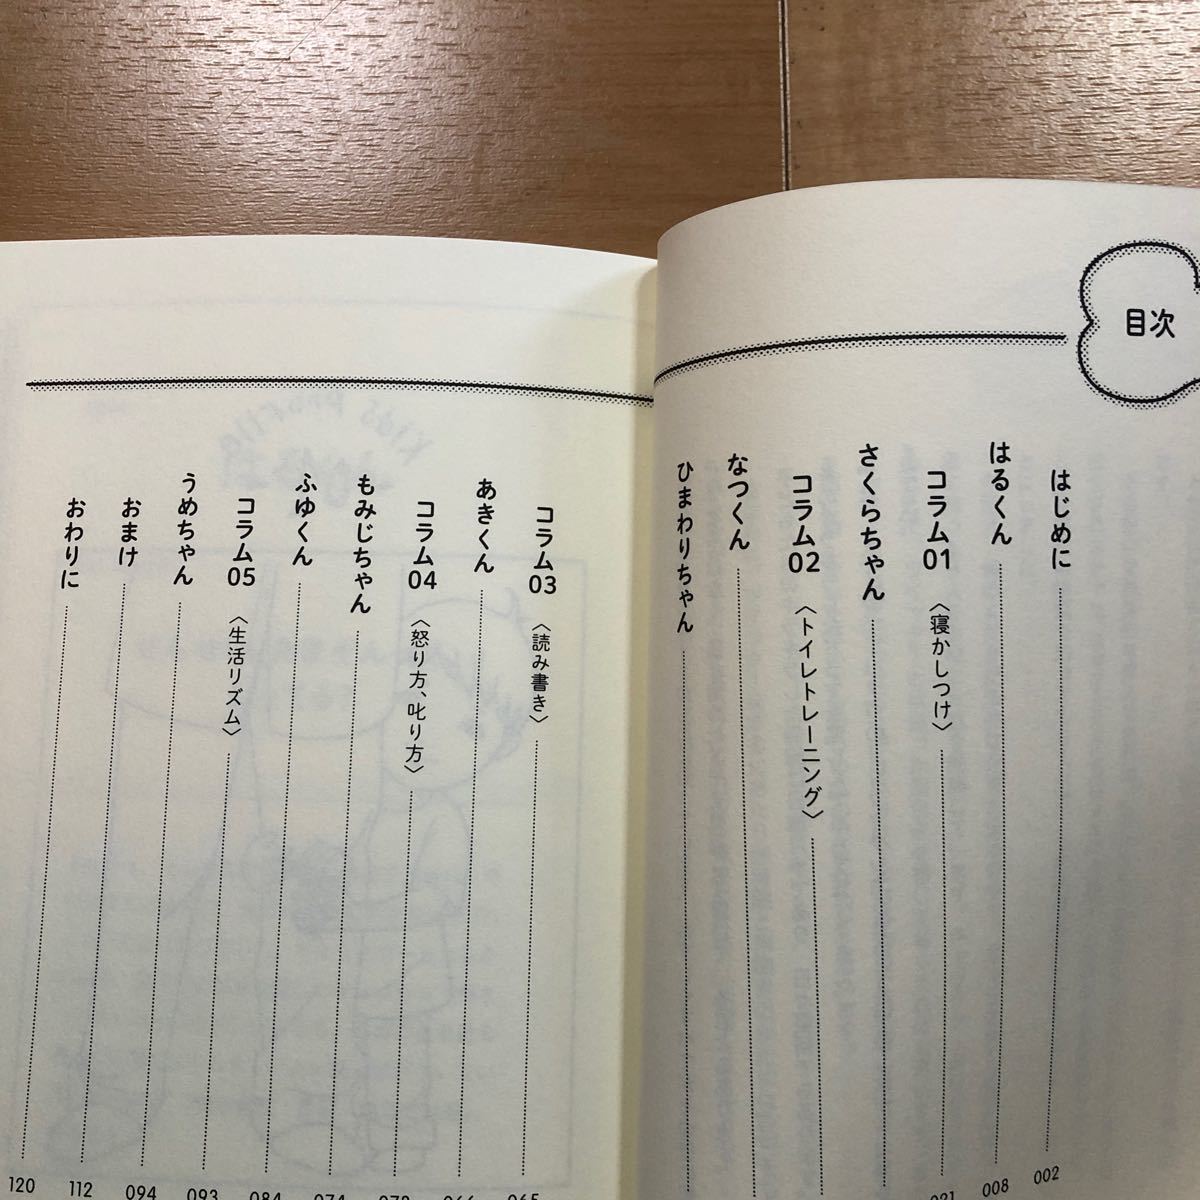 目次
はじめに 002
はるくん 008
コラム01〈寝かしつけ〉 021
さくらちゃん
コラム02〈トイレトレーニング〉
なつくん
ひまわりちゃん
コラム03〈読み書き〉 065
あきくん 066
コラム04〈怒り方、叱り方〉 073
もみじちゃん 074
ふゆくん 084
コラム05〈生活リズム〉 093
うめちゃん 094
おまけ 112
おわりに 120